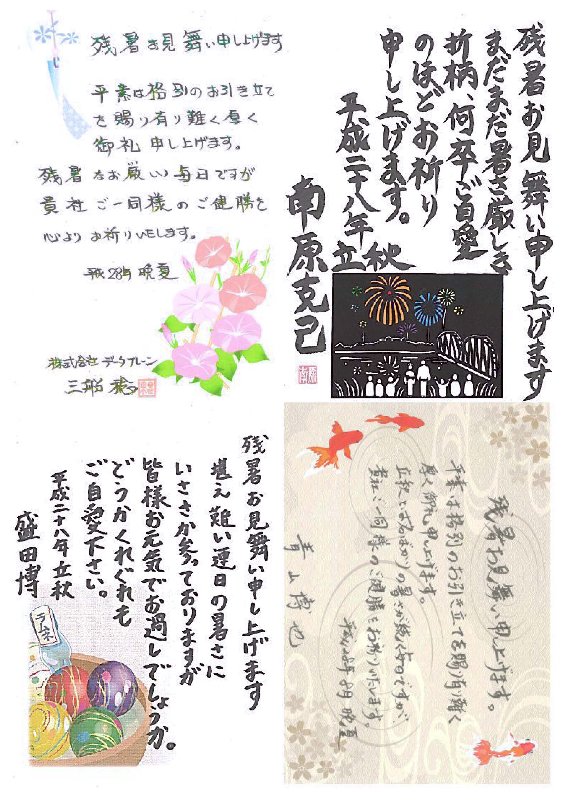 残暑お見舞い申し上げます
平素は格別のお引き立て
を賜り有り難く厚く
御礼申し上げます。
残暑なお厳しい毎日ですが
貴社ご一同様のご健勝を
心よりお祈りいたします。
平成28年 晩夏
株式会社データブレーン
残暑お見舞い申し上げます
まだまだ暑さ厳しき
折柄、何卒ご自愛
のほどお祈り
申し上げます。
平成二十八年 立秋
南原克己
残暑お見舞い申し上げます
堪え難い連日の暑さに
いささか参っておりますが
皆様お元気でお過しでしょうか。
どうかくれぐれも
ご自愛下さい。
平成二十八年 立秋
盛田博
ラムネ
残暑お見舞い申し上げます。
平素は格別のお引き立てを賜り有り難く
厚く御礼申し上げます。
立秋とは名ばかりの暑さが続く毎日ですが
貴社ご一同様のご健勝をお祈りいたします。
平成28年8月 晩夏
青山博也